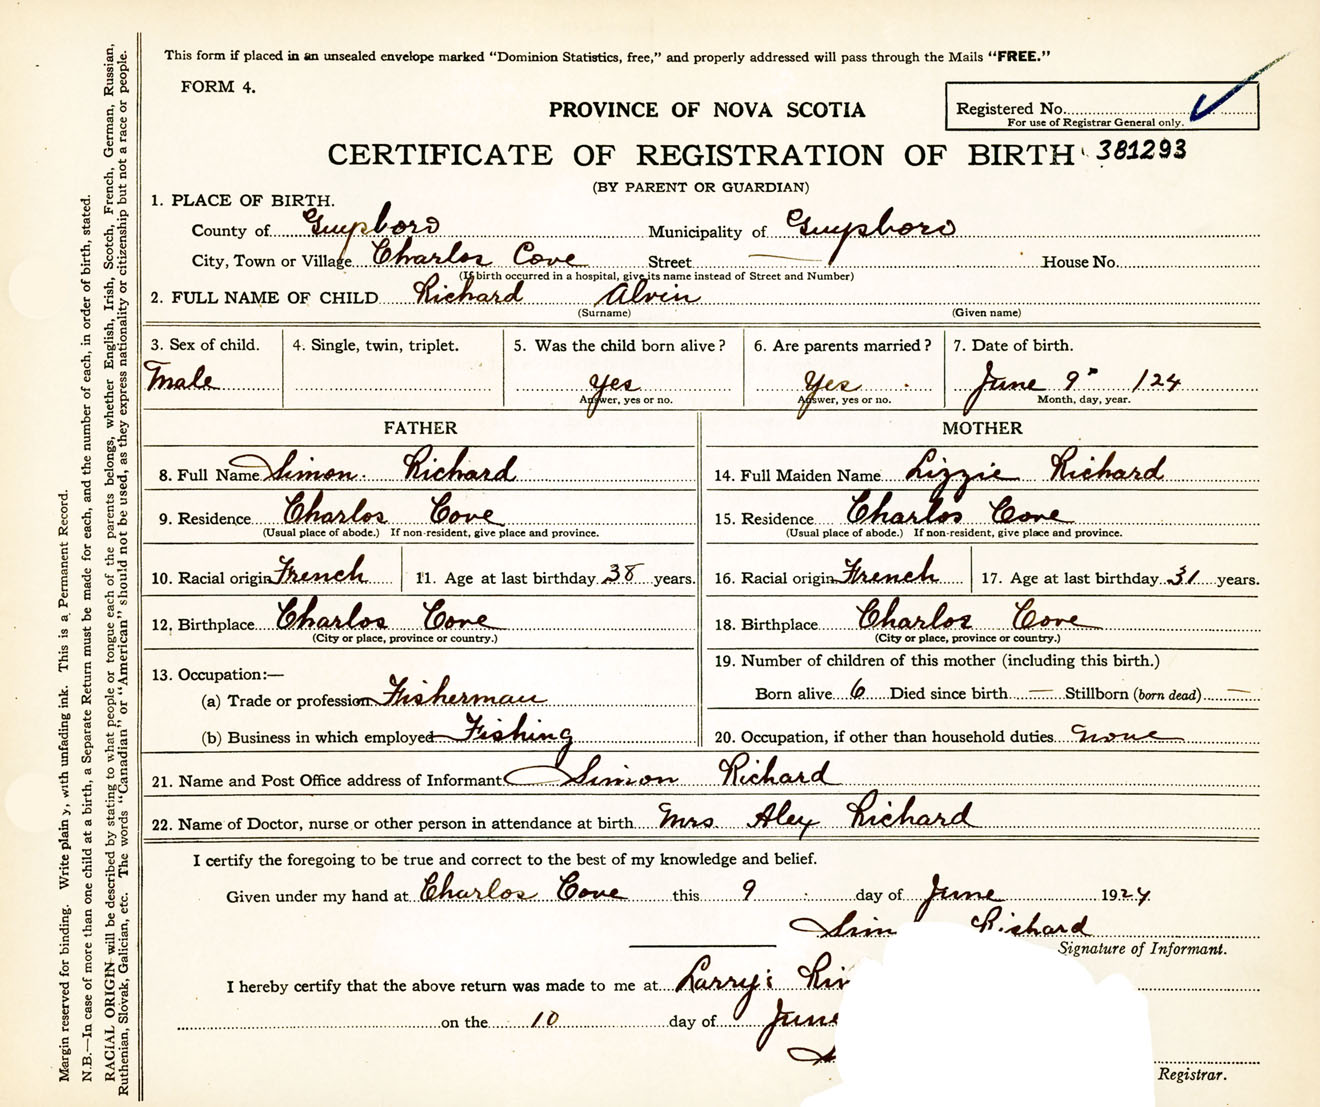 This form if placed in an unsealed envelope marked "Dominion Statistics, free," and properly addressed will pass through the Mails "FREE."
FORM 4.
Registered No.
For use of Registrar General only.
PROVINCE OF NOVA SCOTIA
CERTIFICATE OF REGISTRATION OF BIRTH 381293
(BY PARENT OR GUARDIAN)
1. PLACE OF BIRTH.
County of Guysboro Municipality of Guysboro
City, Town or Village Charlos Cove Street — House No.
(If birth occurred in a hospital, give its name instead of Street and Number)
2. FULL NAME OF CHILD Richard Alvin
(Surname) (Given name)
3. Sex of child. 4. Single, twin, triplet. 5. Was the child born alive? 6. Are parents married? 7. Date of birth.
Male Yes Yes June 9" /24
Answer, yes or no. Answer, yes or no. Month, day, year.
FATHER MOTHER
8. Full Name Simon Richard 14. Full Maiden Name Lizzie Richard
9. Residence Charlos Cove 15. Residence Charlos Cove
(Usual place of abode.) If non-resident, give place and province. (Usual place of abode.) If non-resident, give place and province.
10. Racial origin French 11. Age at last birthday 38 years. 16. Racial origin French 17. Age at last birthday 31 years.
12. Birthplace Charlos Cove 18. Birthplace Charlos Cove
(City or place, province or country.) (City or place, province or country.)
13. Occupation:— 19. Number of children of this mother (including this birth.)
(a) Trade or profession Fisherman Born alive 6 Died since birth — Stillborn (born dead) —
(b) Business in which employed Fishing 20. Occupation, if other than household duties none
21. Name and Post Office address of Informant Simon Richard
22. Name of Doctor, nurse or other person in attendance at birth Mrs Alex Richard
I certify the foregoing to be true and correct to the best of my knowledge and belief.
Given under my hand at Charlos Cove this 9 day of June 1924.
Sim Richard
Signature of Informant.
I hereby certify that the above return was made to me at Larrys Riv
on the 10 day of June
Registrar.
Margin reserved for binding. Write plain y, with unfading ink. This is a Permanent Record.
N.B.—In case of more than one child at a birth, a Separate Return must be made for each, and the number of each, in order of birth, stated.
RACIAL ORIGIN will be described by stating to what people or tongue each of the parents belongs, whether English, Irish, Scotch, French, German, Russian,
Ruthenian, Slovak, Galician, etc. The words "Canadian" or "American" should not be used, as they express nationality or citizenship but not a race or people.